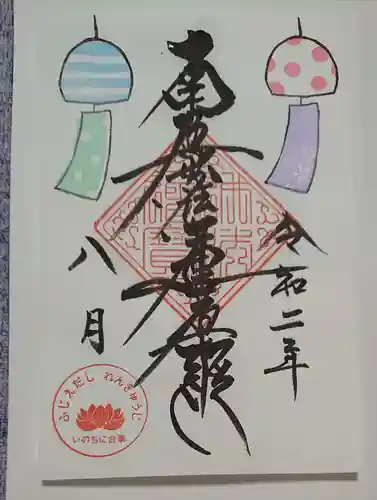 令和二年
南無妙法蓮華経
八月
ふじえだし れんきゅうじ
いのちに合掌